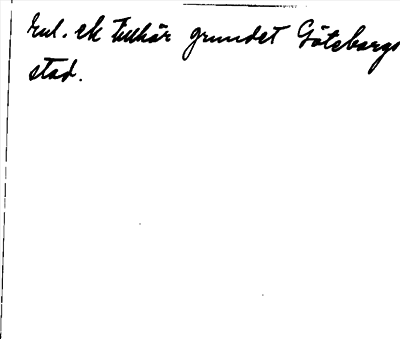 Enl. ek tillhör grundet Göteborgs
stad.